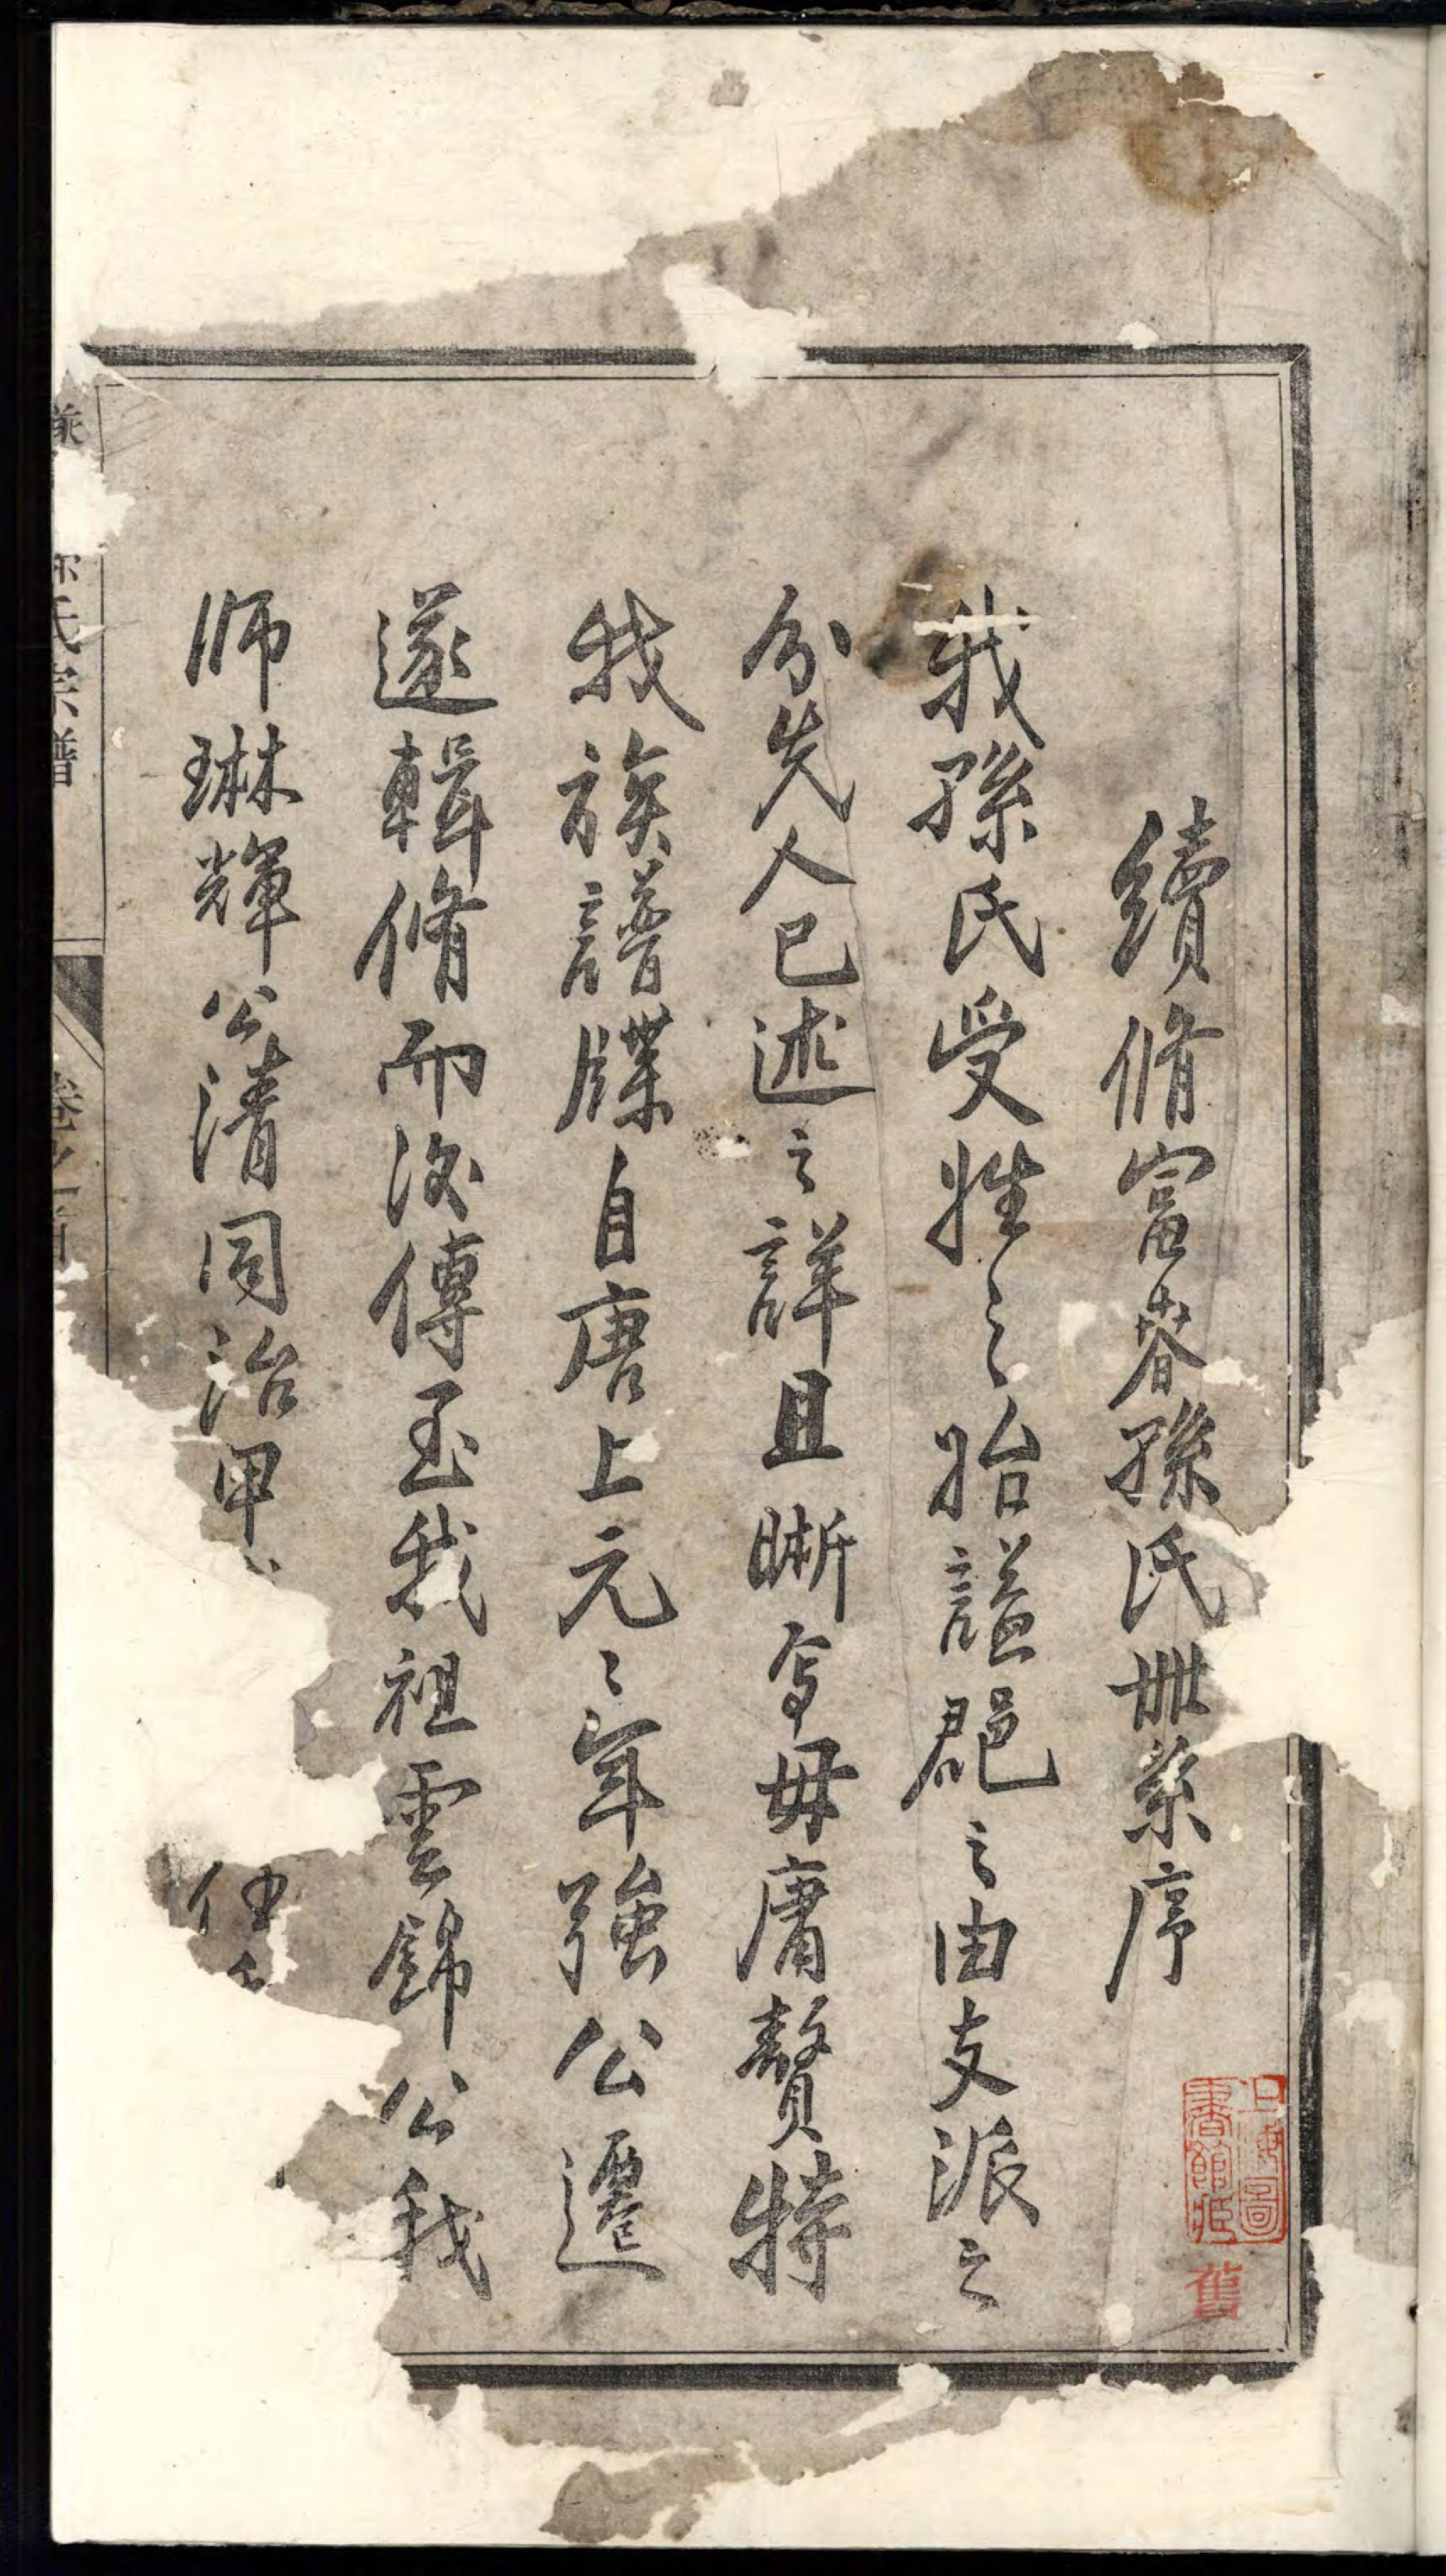 續脩富春孫氏世系序
我孫氏受姓之始謚郡之由支派之
分先人已述之詳且晰矣毋庸贅特
我族譜牒自唐上元二年強公遷
遂輯脩而後傳至我祖雲錦公我
師琳輝公清同治甲
任
氏宗譜
卷之首
上海圖
書館藏
舊